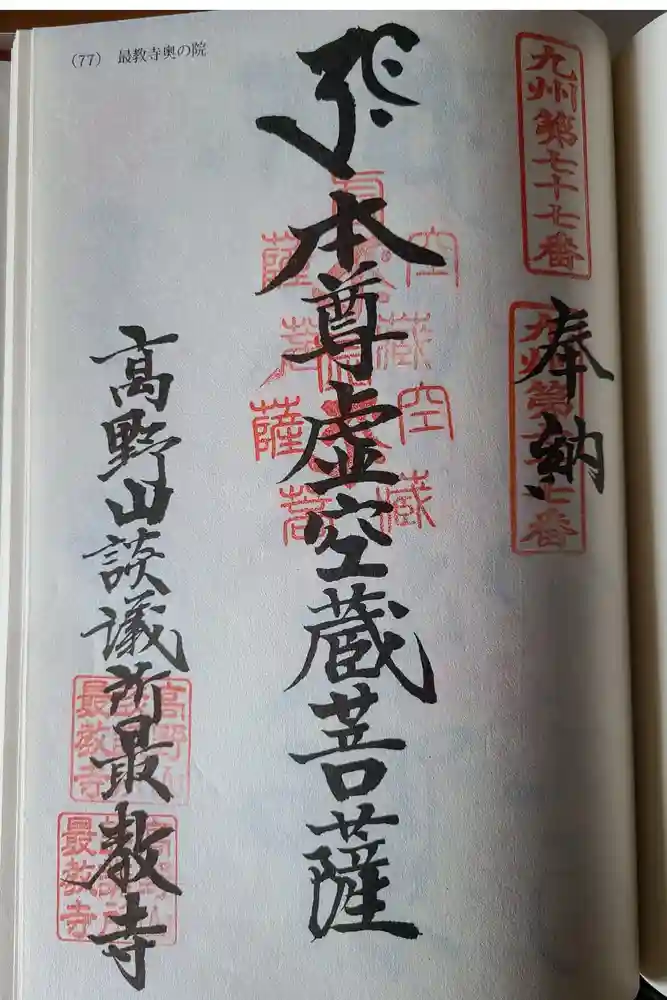 (77) 最教寺奥の院
九州第七十七番
九州第七十七番
奉納
本尊虚空蔵菩薩
高野山談議所最教寺
空蔵
菩薩
空蔵
菩薩
高野山
最教寺
最教寺